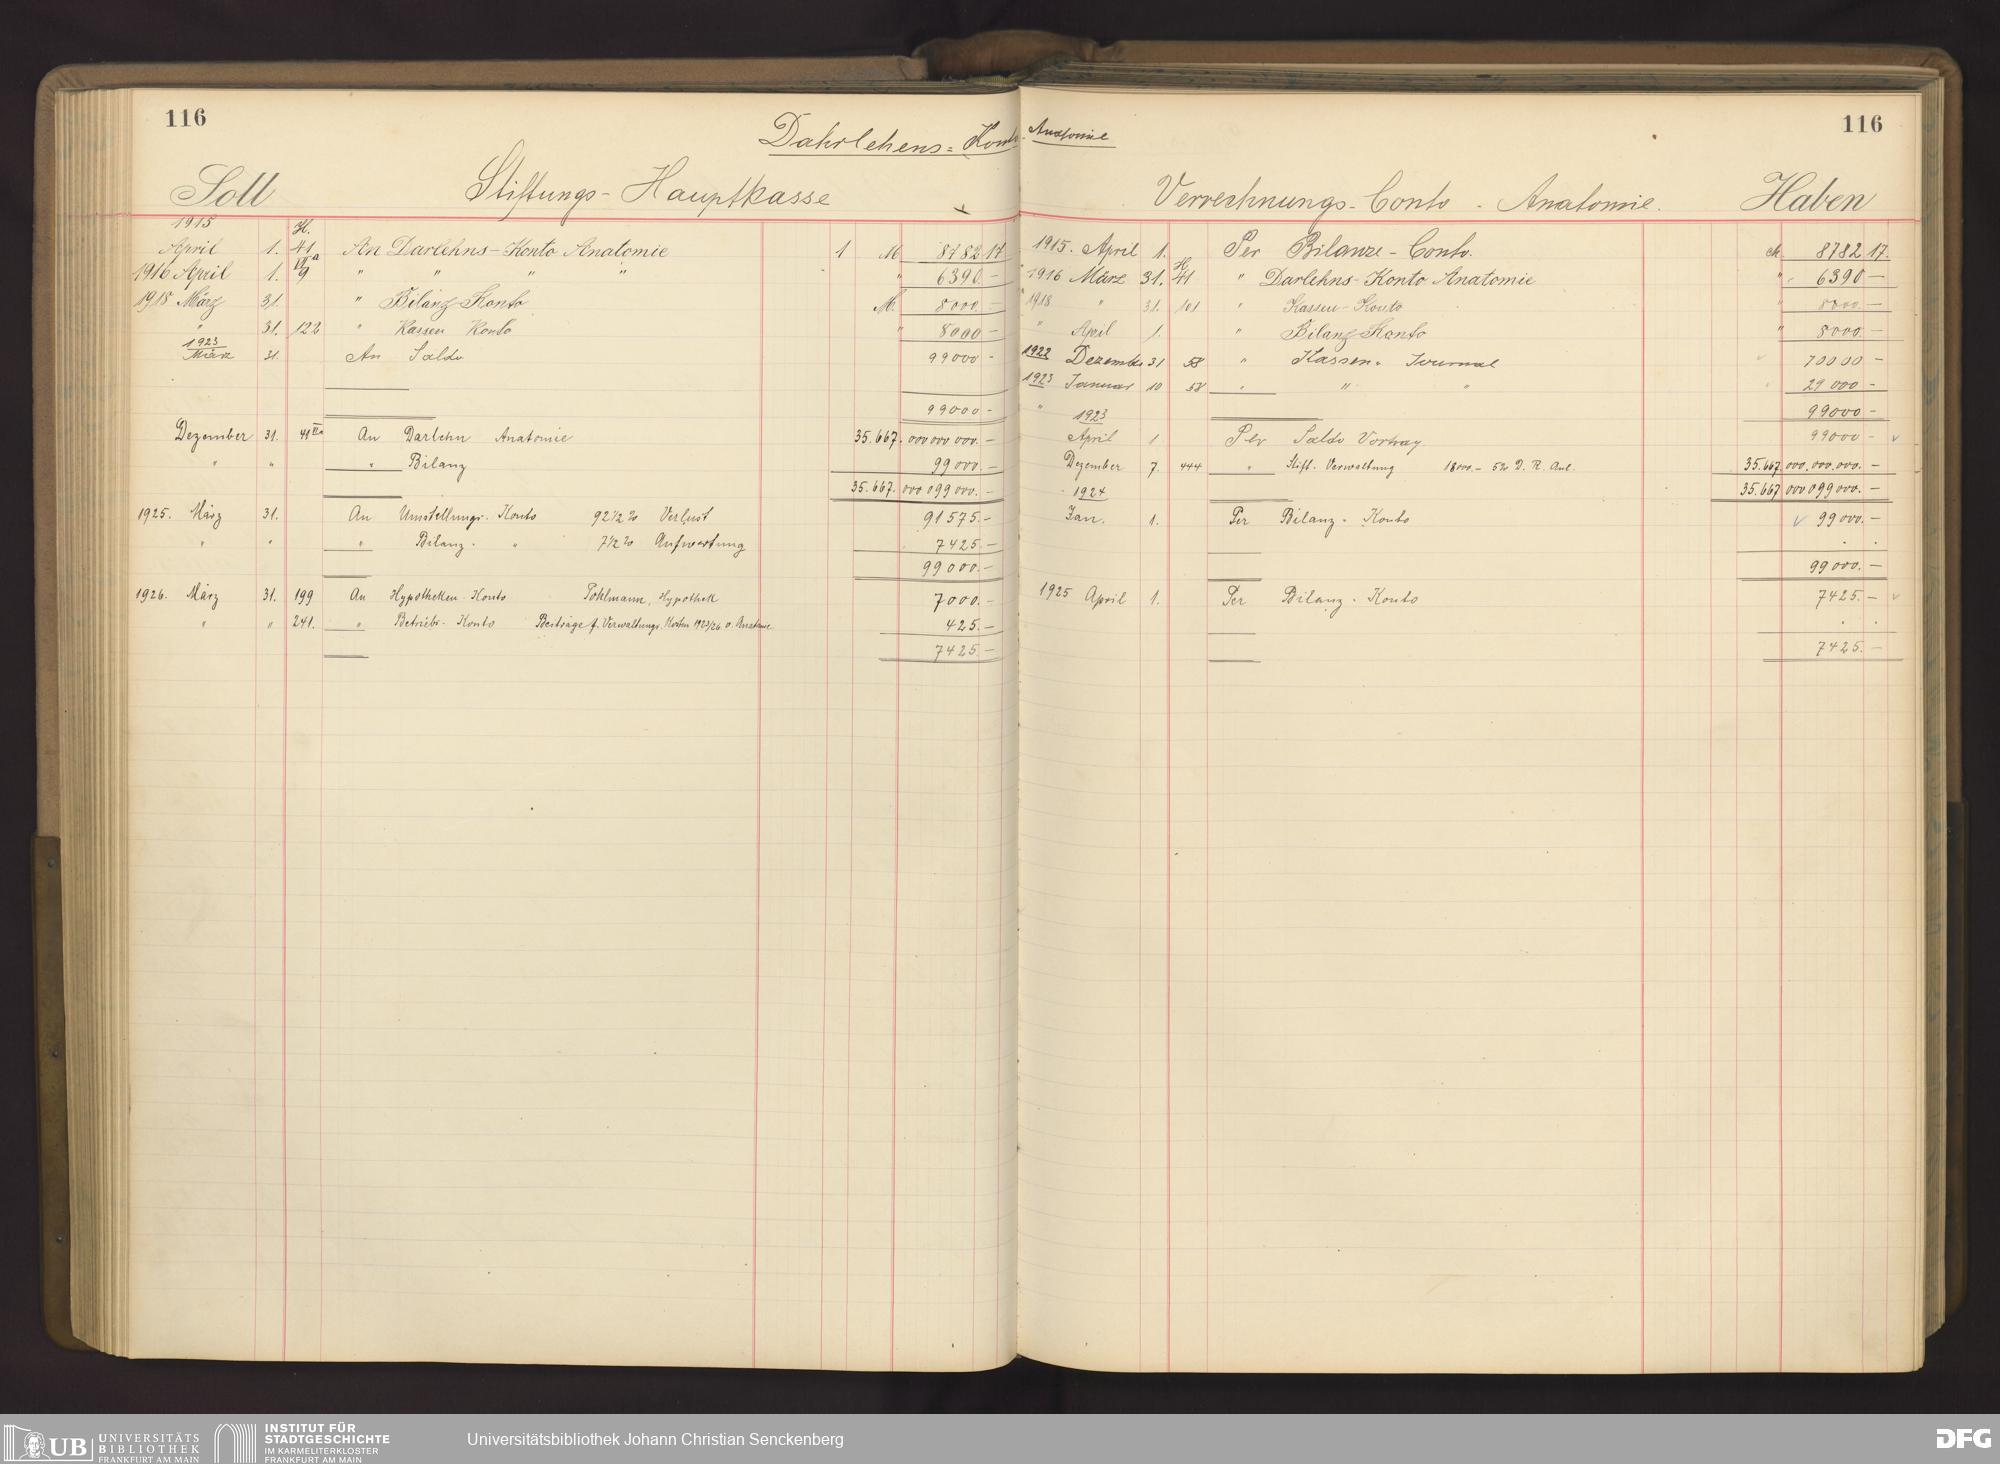 116
Dahrlehens = Konto - Anatomie
116
Soll Stiftungs - Hauptkasse
1915 H.
April 1. 41 An Darlehns - Konto Anatomie 1 M 8782 17
1916 April 1. 9 " " " " " 6390 -
1918 März 31. " Bilanz-Konto M. 8000. -
" 31. 122 " Kassen Konto " 8000 -
1923
März 31. An Saldo 99000 -
99000 -
Dezember 31. 41 An Darlehn Anatomie 35.667.000 000 000. -
" " " Bilanz 99000. -
35.667.000 099 000. -
1925. März 31. An Umstellungs - Konto 92 1/2 % Verlust 91575. -
" " " Bilanz - " 7 1/2 % Aufwertung 7425. -
99000. -
1926. März 31. 199 An Hypotheken - Konto Pohlmann, Hypothek 7000. -
" " 241. " Betriebs - Konto Beiträge f. Verwaltungs. Kosten 1923/26. v. Anatomie 425. -
7425. -
Verrechnungs - Conto - Anatomie. Haben
1915. April 1. Per Bilanze - Conto. M. 8782 17.
H.
1916 März 31. 41 " Darlehns - Konto Anatomie " 6390 -
1918 " 31. 101 " Kassen - Konto " 8000. -
" April 1. " Bilanz-Konto " 8000. -
1922 Dezember 31 58 " Kassen - Journal 70000 -
1923 Januar 10 58 " " " 29000 -
99000 -
" 1923
April 1 Per Saldo Vortrag. 99000 -
Dezember 7. 444 " Stift. Verwaltung 18000. - 5% D. R. Anl. 35.667.000.000.000. -
35.667 000 099 000. -
1924
Jan. 1. Per Bilanz - Konto 99000. -
99000. -
1925 April 1. Per Bilanz - Konto 7425. -
7425. -
UB UNIVERSITÄTS
BIBLIOTHEK
FRANKFURT AM MAIN
INSTITUT FÜR
STADTGESCHICHTE
IM KARMELITERKLOSTER
FRANKFURT AM MAIN
Universitätsbibliothek Johann Christian Senckenberg
DFG